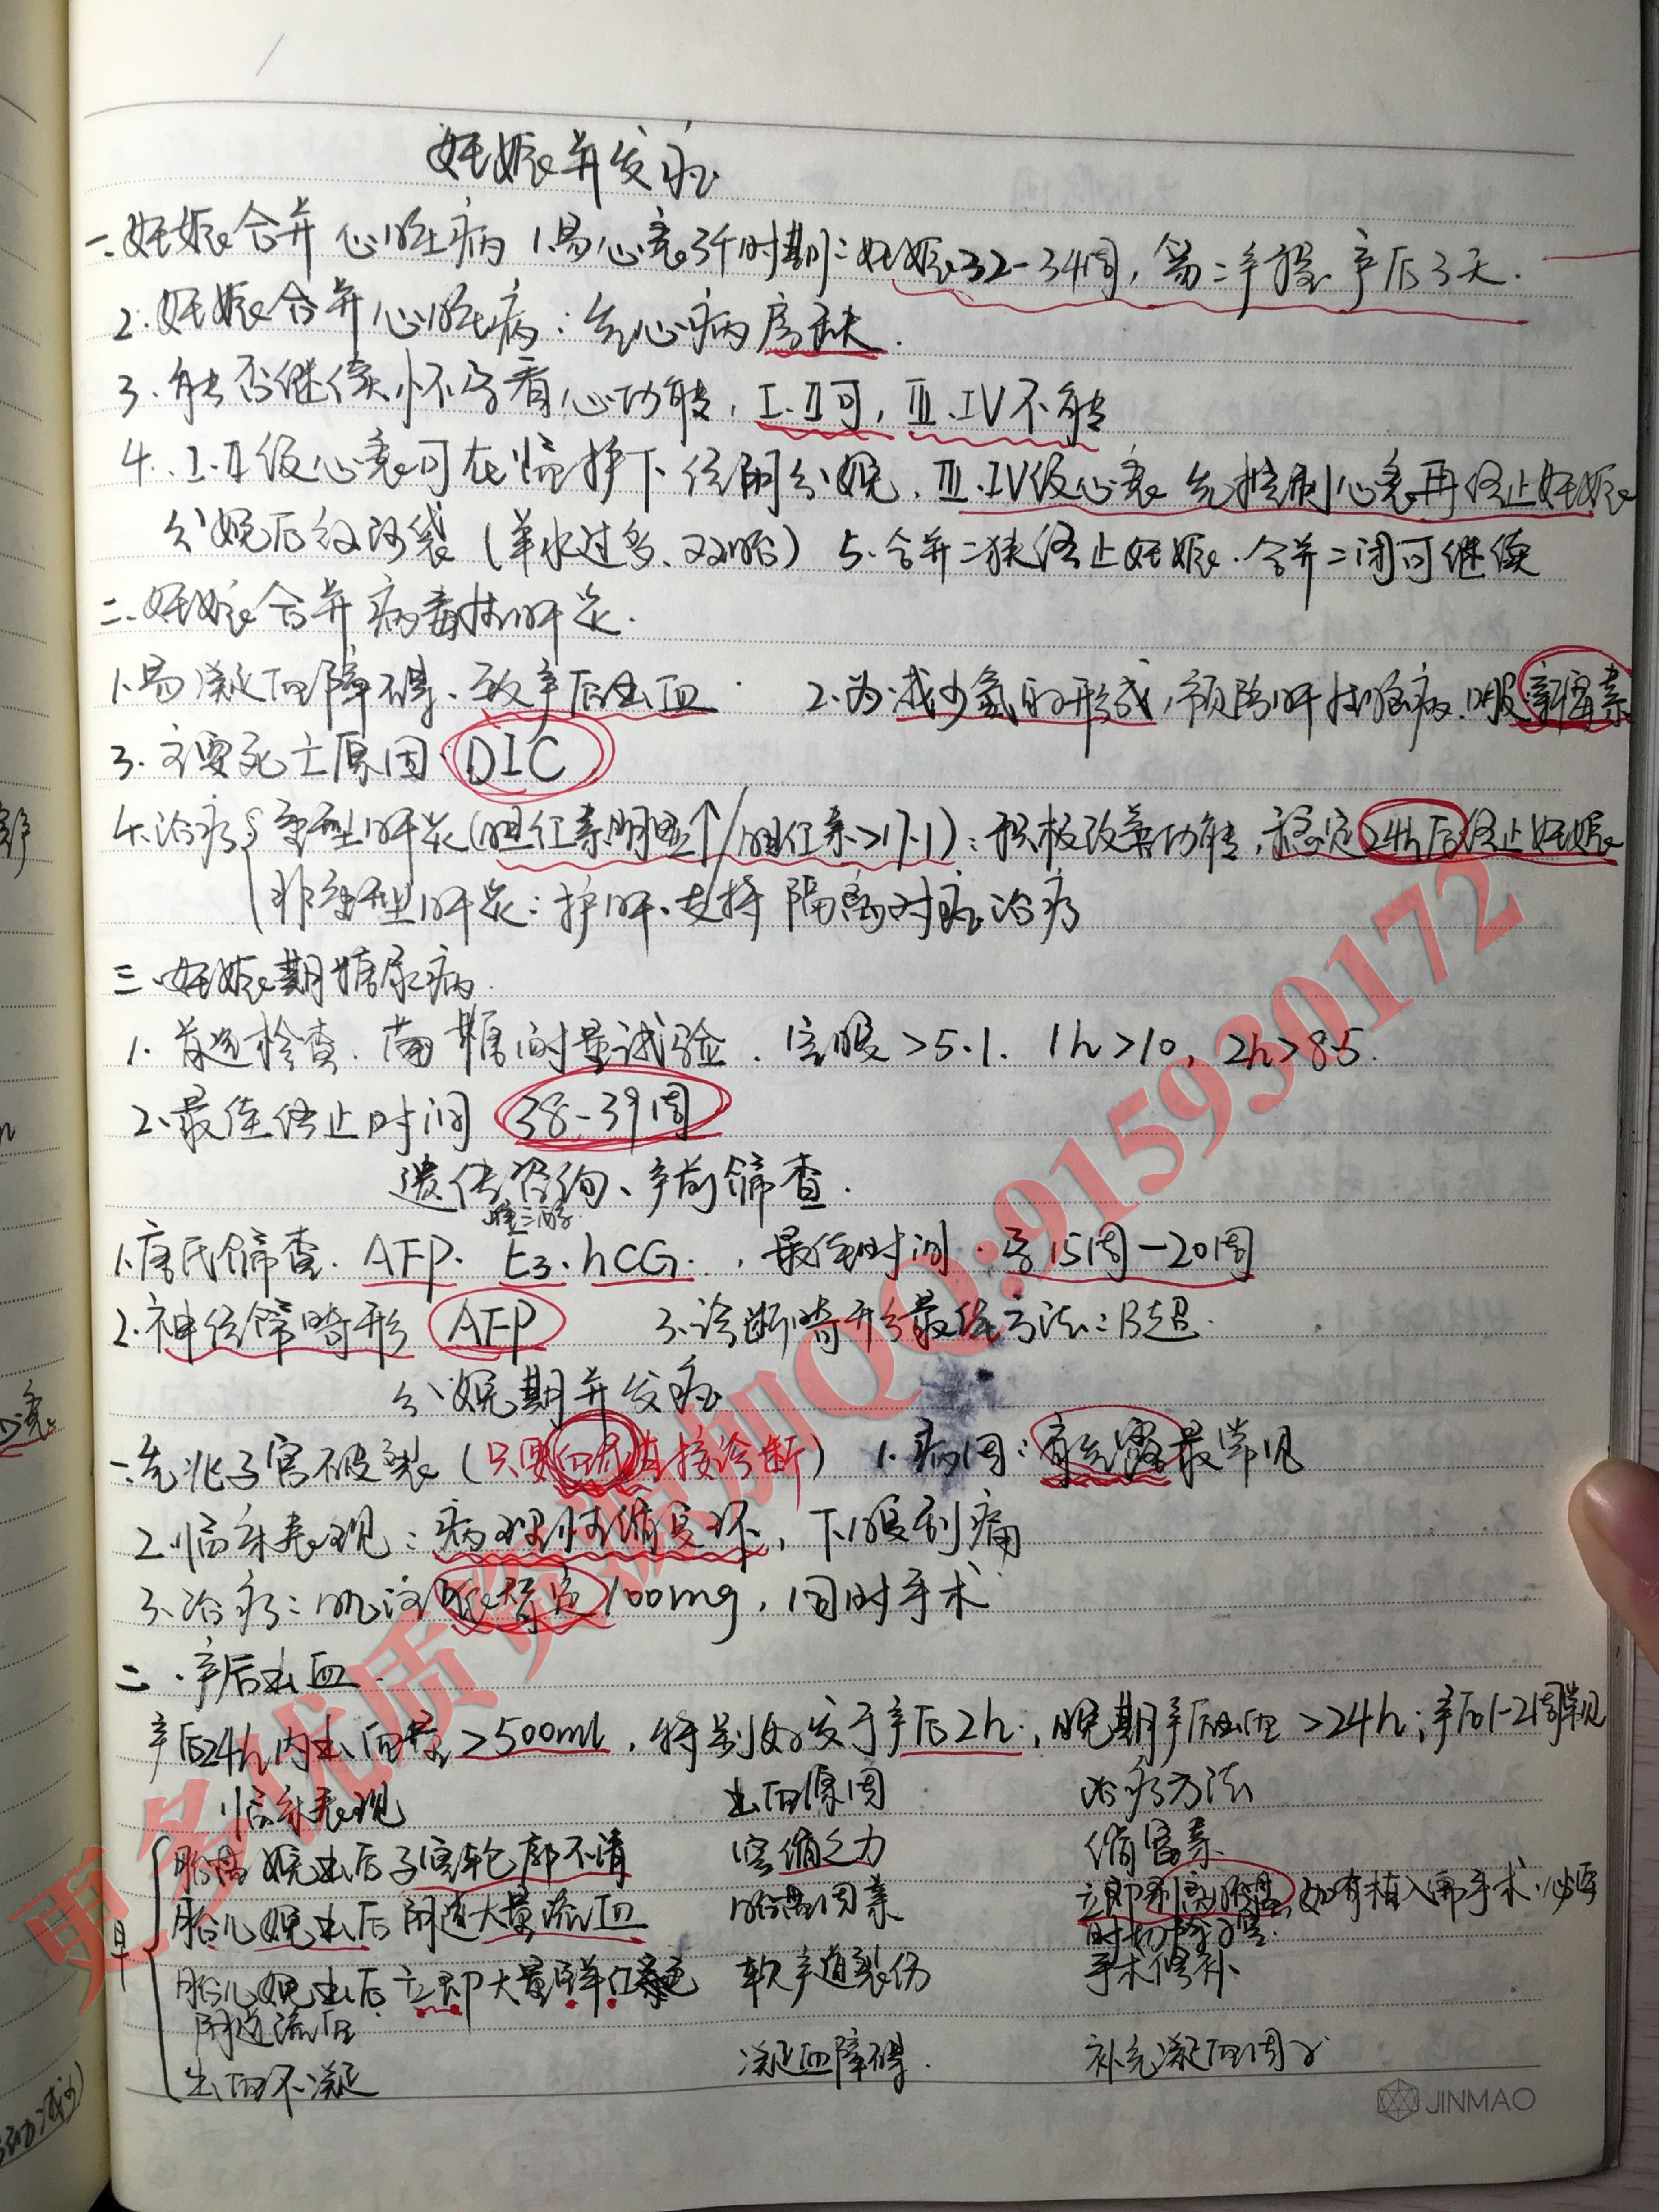 妊娠并发症
一.妊娠合并心脏病 1.易心衰3个时期:妊娠32-34周,第二产程.产后3天.
2.妊娠合并心脏病:先心病房缺.
3.能否继续怀孕看心功能,I.II可,III.IV不能
4.I.II级心衰可在监护下经阴分娩,III.IV级心衰先控制心衰再终止妊娠
分娩后放沙袋(羊水过多、双胎) 5.合并二狭终止妊娠.合并二闭可继续
二.妊娠合并病毒性肝炎.
1.易凝血障碍、致产后出血 2.为减少氨的形成,预防肝性脑病.口服新霉素
3.主要死亡原因.DIC
4.治疗 重型肝炎(胆红素明显↑/胆红素>17.1):积极改善功能,稳定24h后终止妊娠
非重型肝炎:护肝、支持 隔离对症治疗
三.妊娠期糖尿病.
1.首选检查.葡糖耐量试验.空腹>5.1. 1h>10, 2h>8.5.
2.最佳终止时间 38-39周
遗传咨询、产前筛查.
雌三醇
1.唐氏筛查.AFP. E3.hCG.,最佳时间.孕15周-20周
2.神经管畸形 AFP 3.诊断畸形最佳方法:B超.
分娩期并发症
一.先兆子宫破裂(只要血尿直接诊断) 1.病因:梗阻最常见
2.临床表现:病理性缩复环,下腹剧痛
3.治疗:肌注哌替啶100mg,同时手术
二.产后出血.
产后24h内出血量≥500ml,特别好发于产后2h.,晚期产后出血>24h;产后1-2周常见
临床表现 出血原因 治疗方法
胎盘娩出后子宫轮廓不清 宫缩乏力 缩宫素
胎儿娩出后阴道大量流血 胎盘因素 立即剥离胎盘,如有植入需手术.必要
时切除子宫.
胎儿娩出后立即大量鲜红色 软产道裂伤 手术修补
阴道流血
出血不凝 凝血障碍. 补充凝血因子
JINMAO
更多优质资源加QQ:915930172